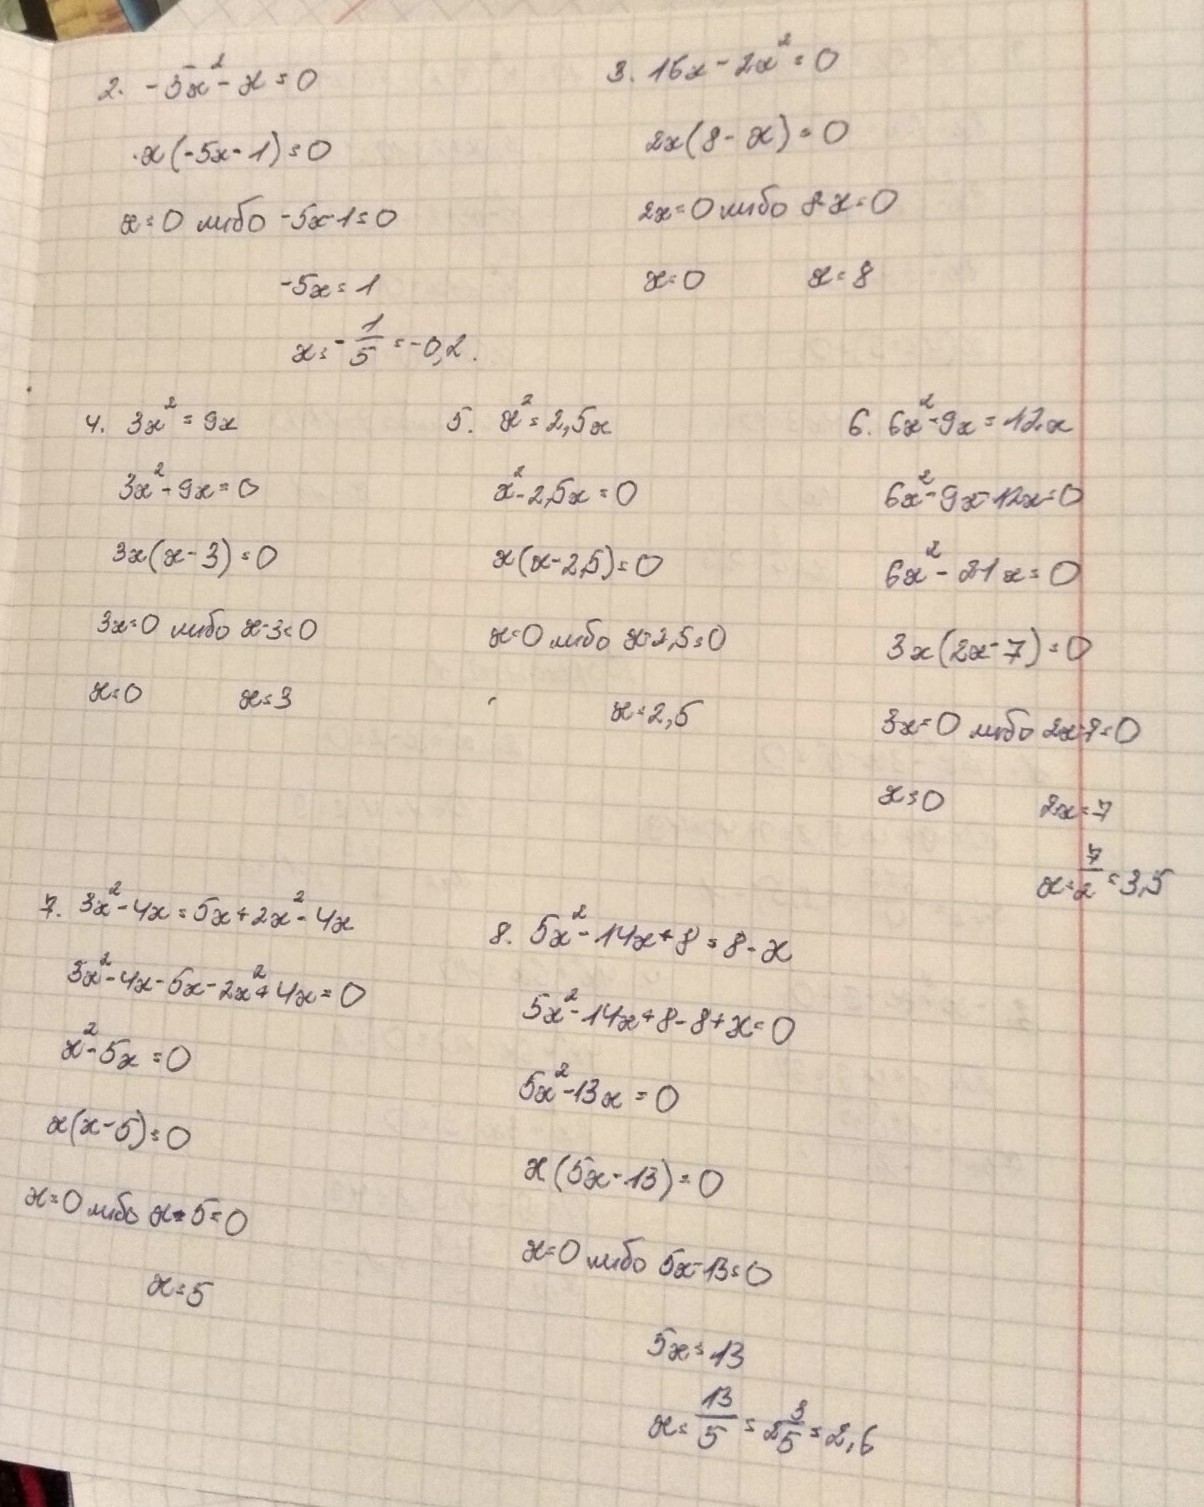 2. -5x² - x = 0
x(-5x-1) = 0
x=0 либо -5x-1=0
-5x = 1
x = -1/5 = -0,2.
3. 16x - 2x² = 0
2x(8 - x) = 0
2x=0 либо 8-x=0
x=0 x=8
4. 3x² = 9x
3x² - 9x = 0
3x(x-3) = 0
3x=0 либо x-3=0
x=0 x=3
5. x² = 2,5x
x² - 2,5x = 0
x(x-2,5) = 0
x=0 либо x-2,5=0
x=2,5
6. 6x² - 9x = 12x
6x² - 9x - 12x = 0
6x² - 21x = 0
3x(2x-7) = 0
3x=0 либо 2x-7=0
x=0 2x=7
x = 7/2 = 3,5
7. 3x² - 4x = 5x + 2x² - 4x
3x² - 4x - 5x - 2x² + 4x = 0
x² - 5x = 0
x(x-5) = 0
x=0 либо x-5=0
x=5
8. 5x² - 14x + 8 = 8 - x
5x² - 14x + 8 - 8 + x = 0
5x² - 13x = 0
x(5x-13) = 0
x=0 либо 5x-13=0
5x = 13
x = 13/5 = 2 3/5 = 2,6